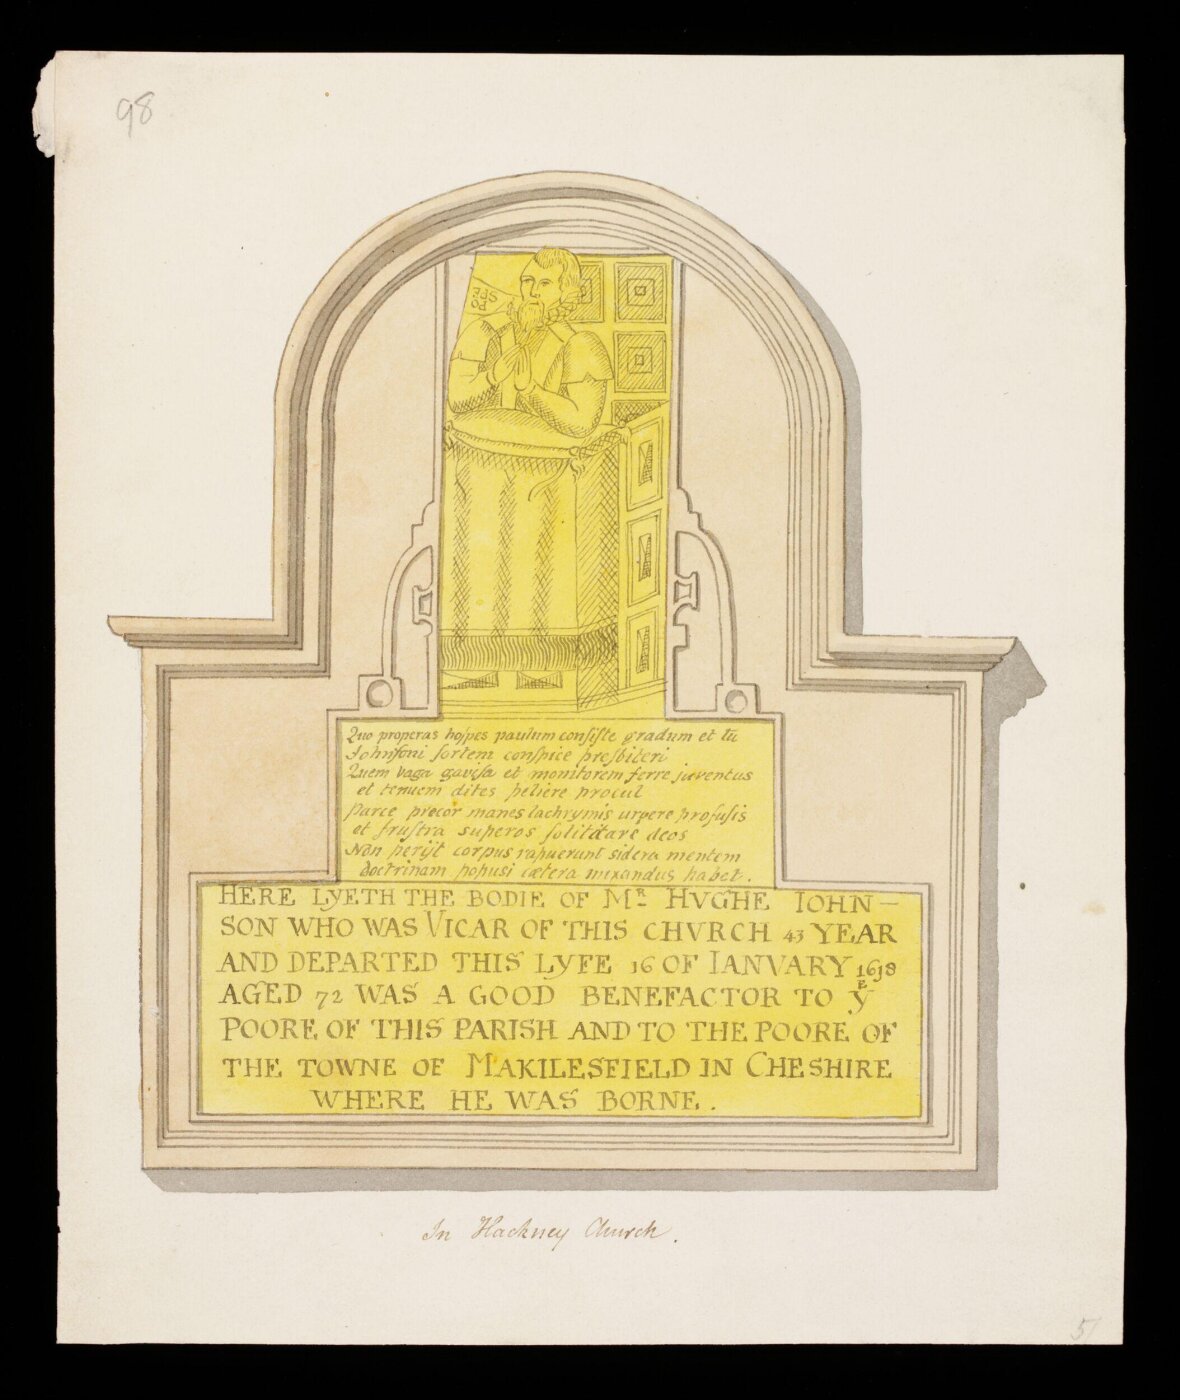 98
Quo properas hospes paulum consiste gradum et tū
Johnsoni sortem conspice presbiteri
Quem vaga gavisa et monitorem ferre juventus
et tenuem dites peliere procul
Parce precor manes lachrymis urgere profusis
et frustra superos solitare deos
Non perijt corpus rapuerunt sidera mentem
doctrinam populi cætera mirandus habet.
HERE LYETH THE BODIE OF Mᴿ HVGHE IOHN–
SON WHO WAS VICAR OF THIS CHVRCH 43 YEAR
AND DEPARTED THIS LYFE 16 OF IANVARY 1618
AGED 72 WAS A GOOD BENEFACTOR TO yᴱ
POORE OF THIS PARISH AND TO THE POORE OF
THE TOWNE OF MAKILESFIELD IN CHESHIRE
WHERE HE WAS BORNE.
In Hackney Church.